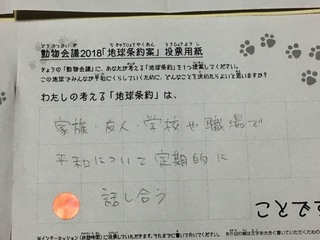 動物会議2018「地球条約案」投票用紙
きょうの「動物会議」に、あなたが考える「地球条約」を1つ提案してください。
この地球でみんなが平和にくらしていくために、どんなことを決めたらよいと思いますか?
わたしの考える「地球条約」は、
家族・友人・学校や職場で
平和について定期的に
話し合う